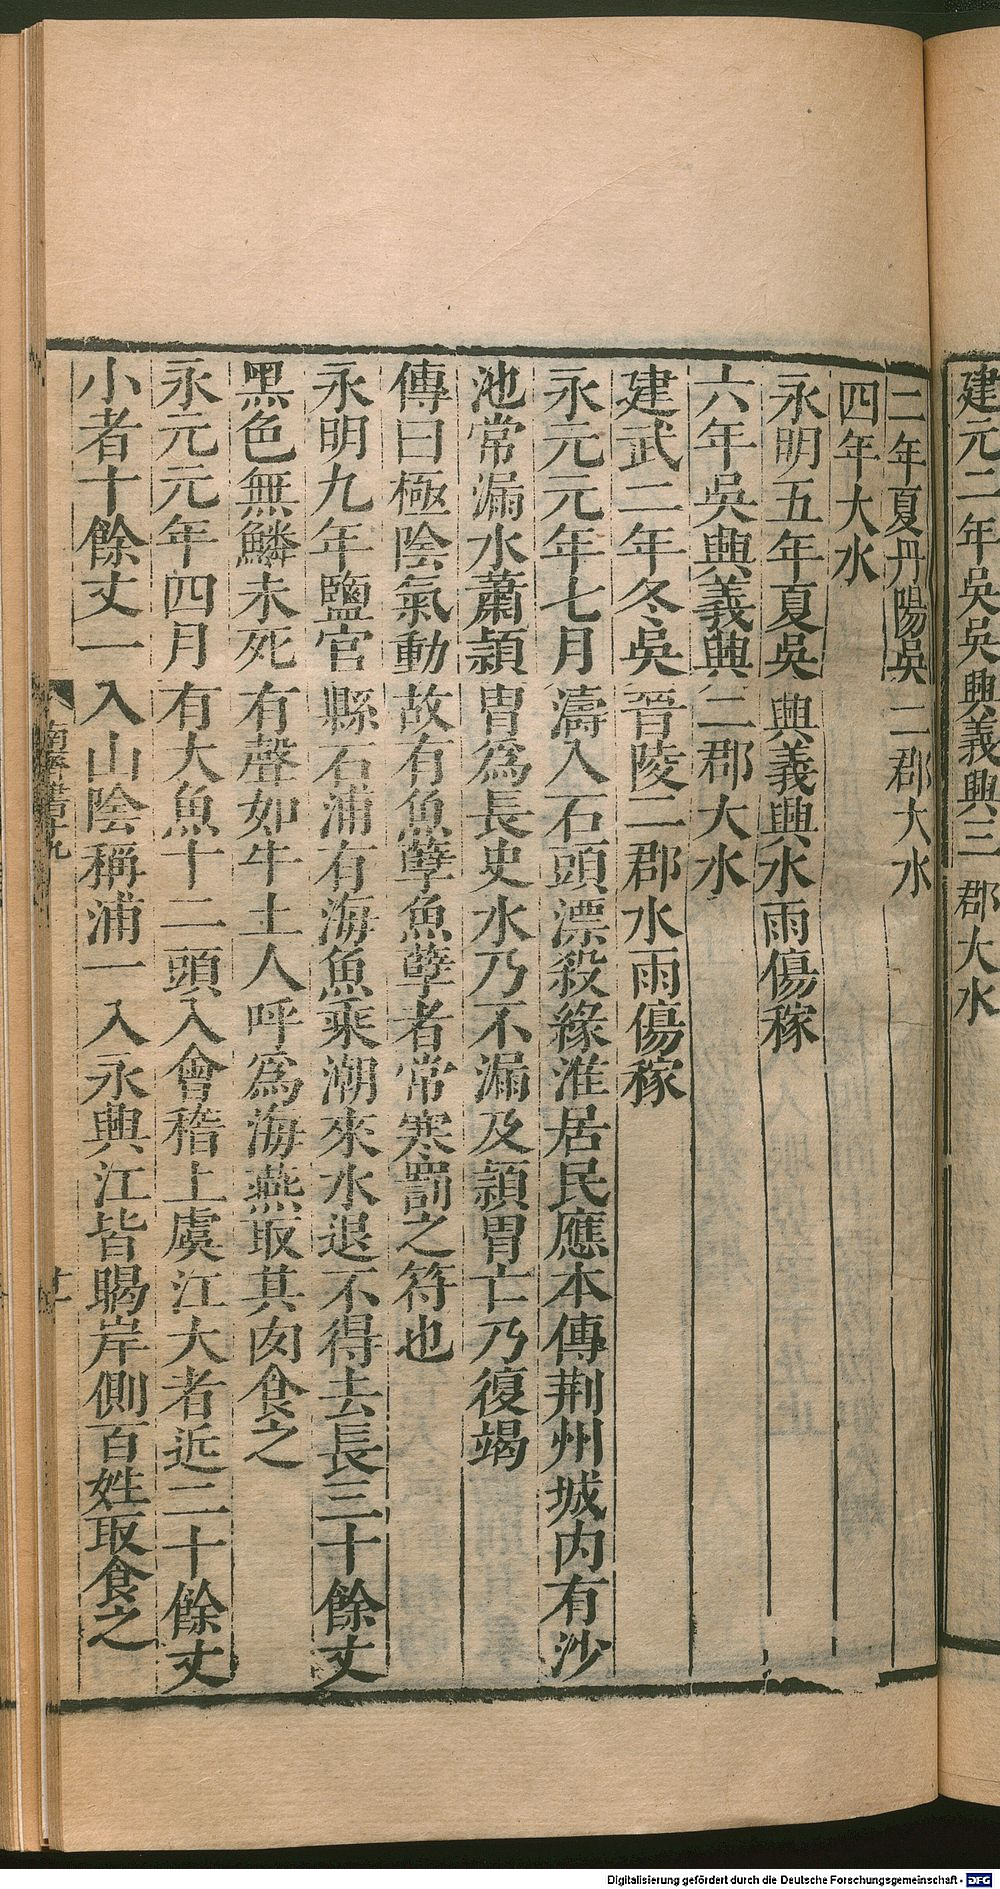 建元二年吳吳興義興三郡大水
二年夏丹陽吳二郡大水
四年大水
永明五年夏吳興義興水雨傷稼
六年吳興義興二郡大水
建武二年冬吳晉陵二郡水雨傷稼
永元元年七月濤入石頭漂殺緣淮居民應本傳荆州城內有沙
池常漏水蕭頴胄爲長史水乃不漏及頴胄亡乃復竭
傳曰極陰氣動故有魚孽魚孽者常寒罰之符也
永明九年鹽官縣石浦有海魚乘潮來水退不得去長三十餘丈
黑色無鱗未死有聲如牛土人呼爲海燕取其肉食之
永元元年四月有大魚十二頭入會稽上虞江大者近二十餘丈
小者十餘丈一入山陰稱浦一入永興江皆暍岸側百姓取食之
南齊書十九
Digitalisierung gefördert durch die Deutsche Forschungsgemeinschaft - DFG